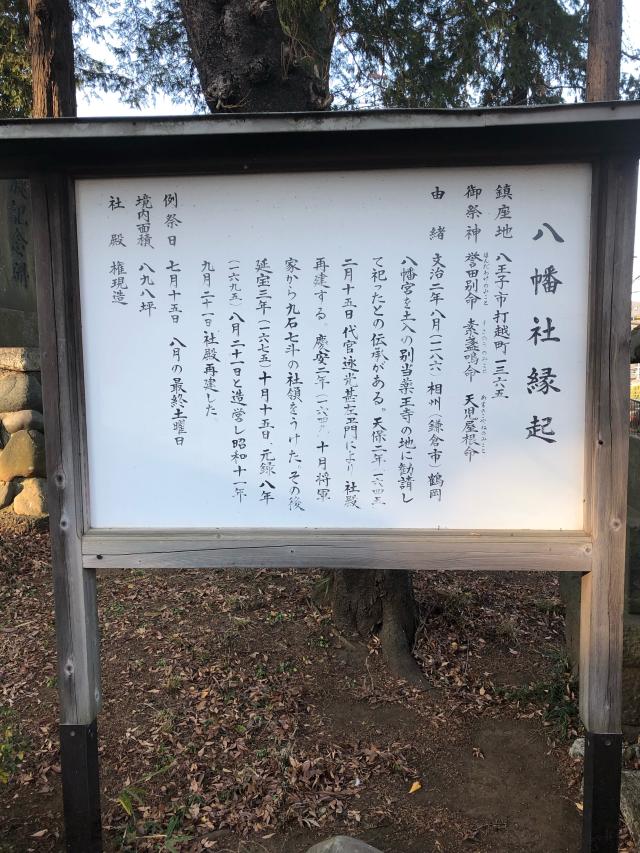 八幡社縁起
鎮座地 八王子市打越町一三六五
御祭神 誉田別命 素盞鳴命 天児屋根命
ほんだわけのみこと すさのおのみこと あまつこやねのみこと
由緒 文治二年八月(一一八六)相州(鎌倉市)鶴岡
八幡宮を土入の別当薬王寺の地に勧請し
て祀ったとの伝承がある。天保二年(一六四五)
二月十五日代官 甚左エ門により社殿
再建する。慶安二年(一六四九)十月将軍
家から九石七斗の社領をうけた。その後
延宝三年(一六七五)十月十五日、元録八年
(一六九五)八月二十一日と造営し昭和十一年
九月二十一日社殿再建した。
例祭日 七月十五日 八月の最終土曜日
境内面積 八九八坪
社殿 権現造
記念碑